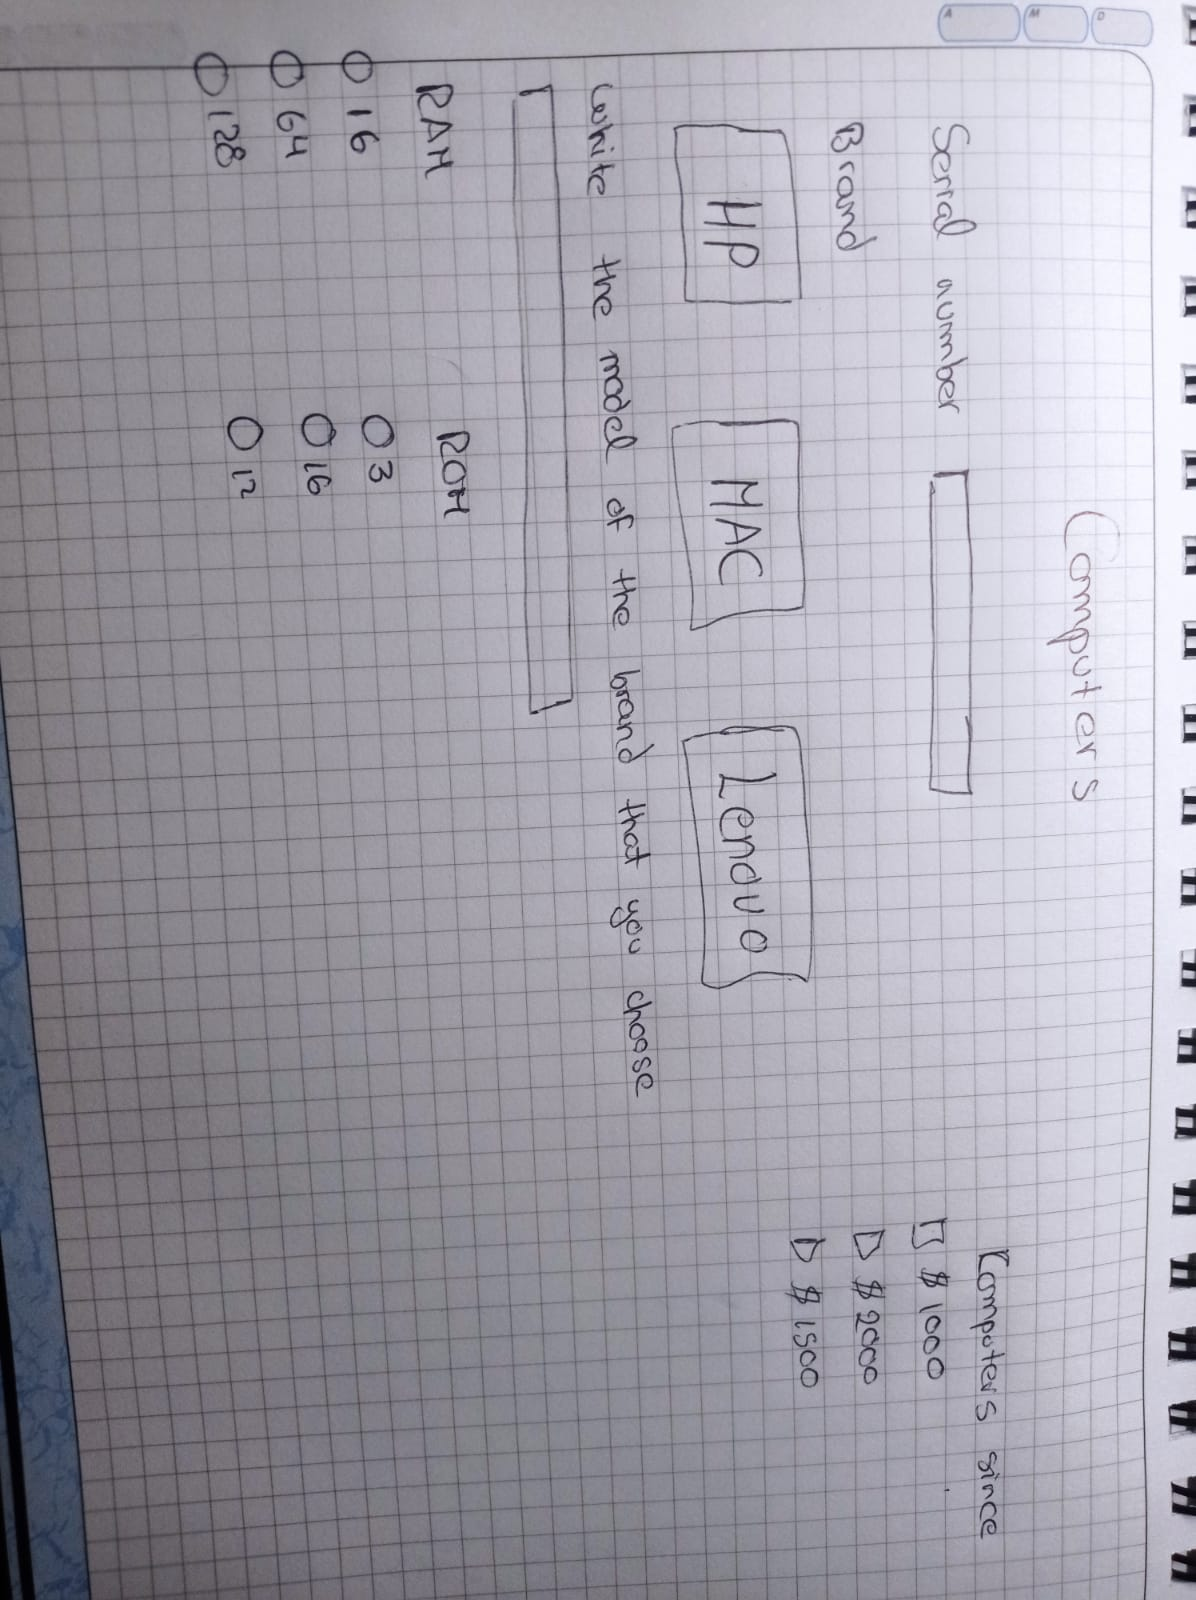 A M D
Computers
Serial number
Brand
HP MAC Lenovo
White the model of the brand that you choose
RAM ROM
16 3
64 16
128 12
Computers since
$1000
$2000
$1500